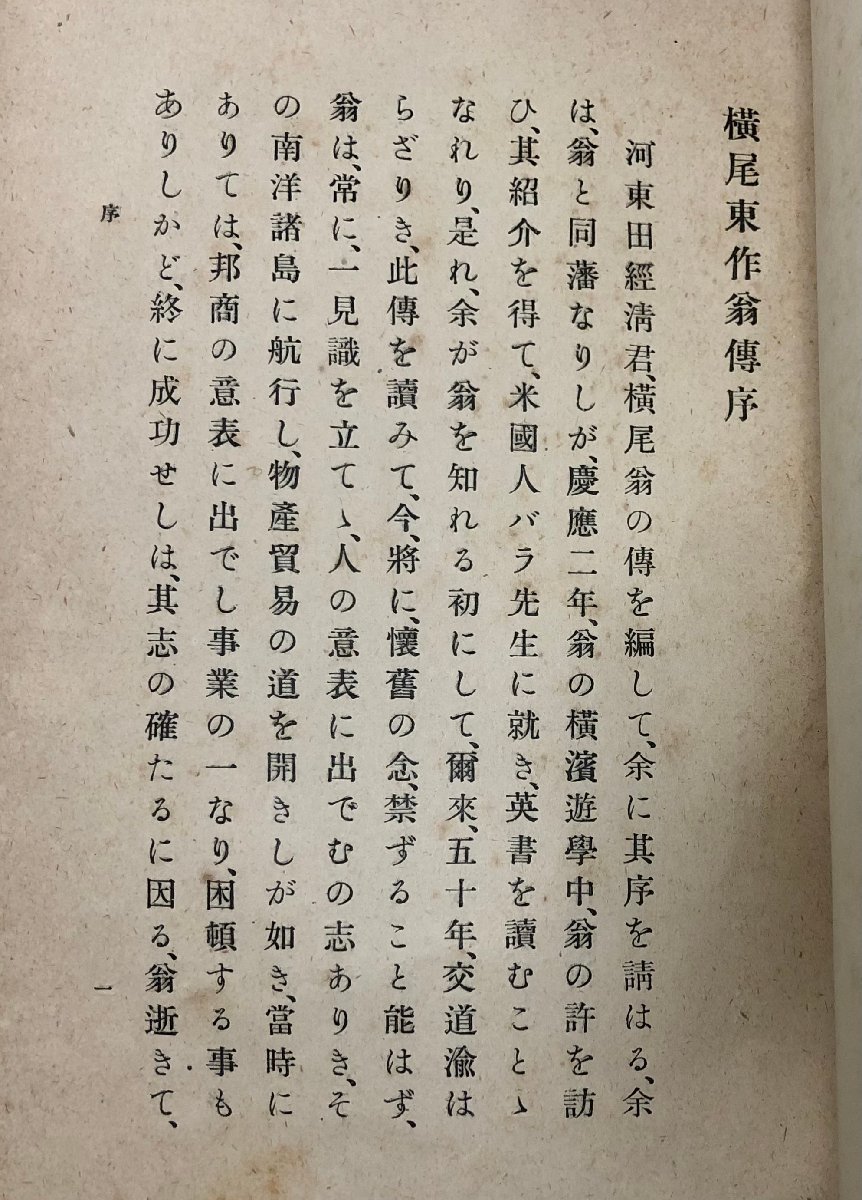 橫尾東作翁傳序
河東田經淸君、橫尾翁の傳を編して、余に其序を請はる、余
は、翁と同藩なりしが、慶應二年、翁の橫濱遊學中、翁の許を訪
ひ、其紹介を得て、米國人バラ先生に就き、英書を讀むことゝ
なれり、是れ、余が翁を知れる初にして、爾來、五十年、交道渝は
らざりき、此傳を讀みて、今、將に、懷舊の念、禁ずること能はず、
翁は、常に、一見識を立てゝ、人の意表に出でむの志ありき、そ
の南洋諸島に航行し、物產貿易の道を開きしが如き、當時に
ありては、邦商の意表に出でし事業の一なり、困頓する事も
ありしかど、終に成功せしは、其志の確たるに因る、翁逝きて、
序
一